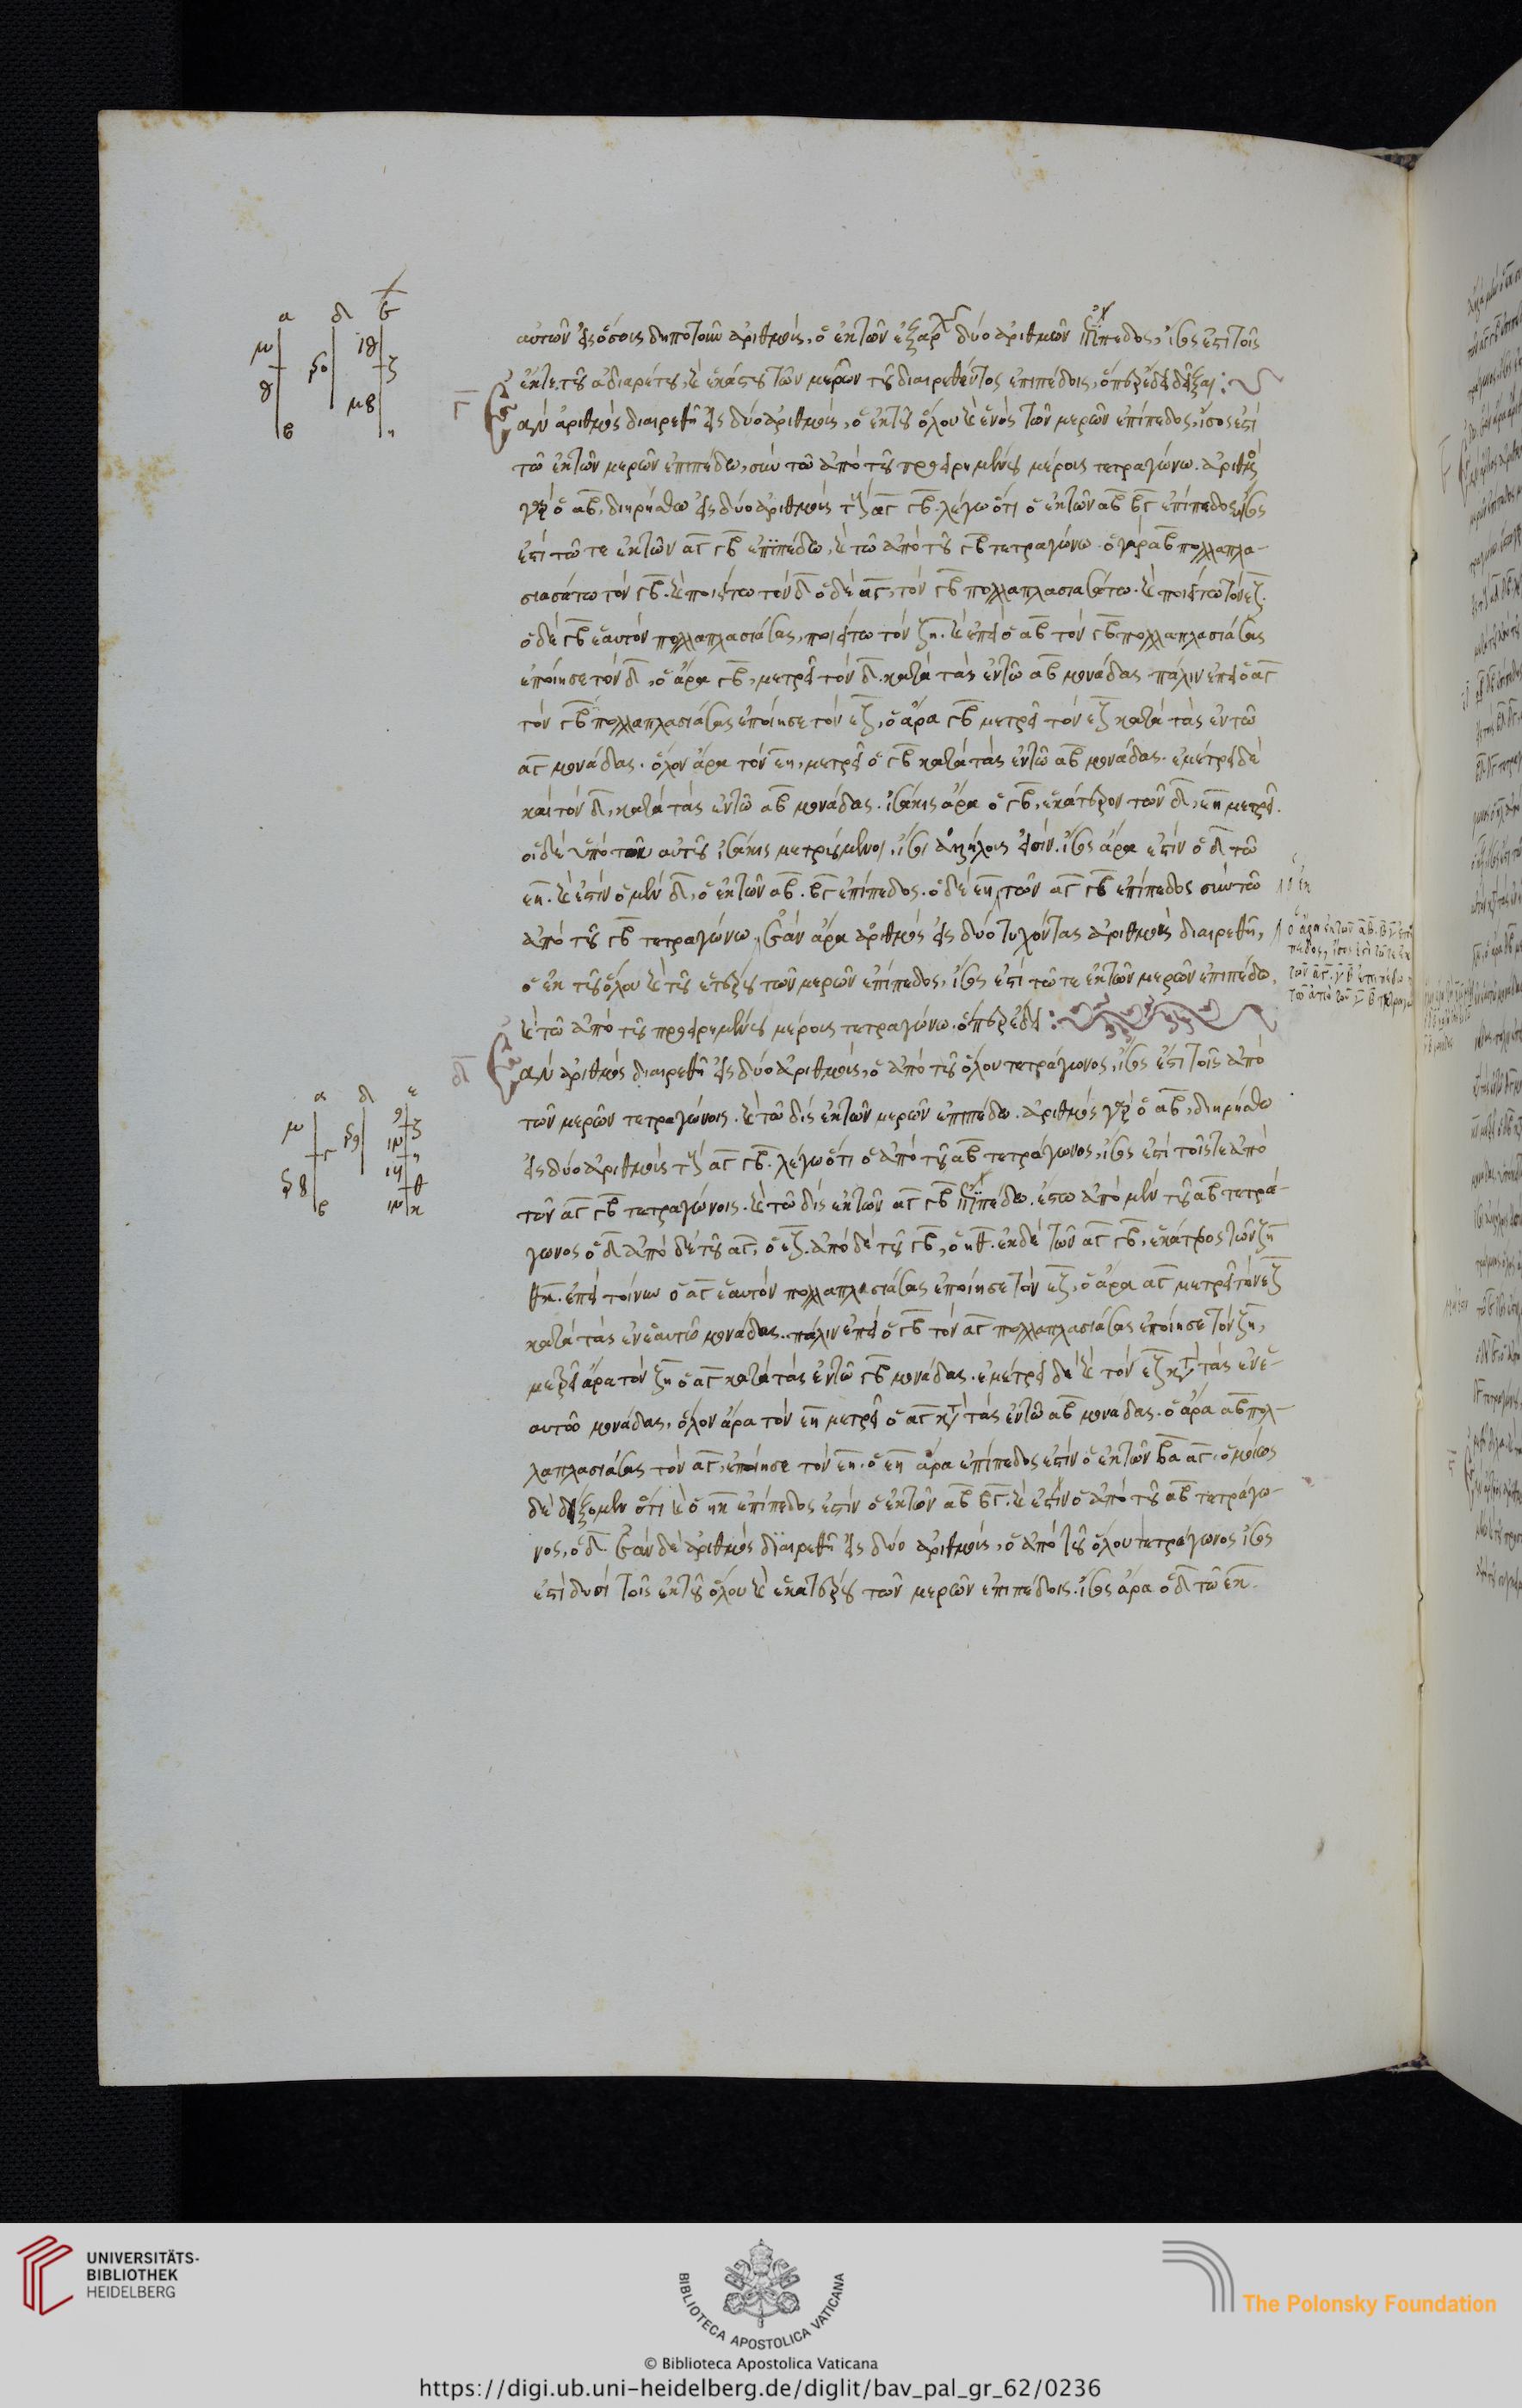 αὐτῶν εἰς ὁσουσδηποτοῦν ἀριθμούς, ὁ ἐκ τῶν ἐξαρχῆς δύο ἀριθμῶν ἐπίπεδος, ἴσος ἐστὶ τοῖς
ἔκ τε τοῦ ἀδιαιρέτου, καὶ ἑκάστου τῶν μερῶν τοῦ διαιρεθέντος ἐπιπέδοις, ὅπερ ἔδει δεῖξαι :
γ Ἐὰν ἀριθμὸς διαιρεθῆ εἰς δύο ἀριθμούς, ὁ ἐκ τοῦ ὅλου καὶ ἑνὸς τῶν μερῶν ἐπίπεδος, ἴσος ἐστὶ
τῶ ἐκ τῶν μερῶν ἐπιπέδω, σὺν τῶ ἀπὸ τοῦ προειρημένου μέρους τετραγώνω. ἀριθμὸς
γὰρ ὁ αβ, διηρήσθω εἰς δύο ἀριθμοὺς τοὺς αγ γβ. λέγω ὅτι ὁ ἐκ τῶν αβ βγ ἐπίπεδος ἴσος
ἐστὶ τῶ τε ἐκ τῶν αγ γβ ἐπιπέδω, καὶ τῶ ἀπὸ τοῦ γβ τετραγώνω. ὁ γὰρ αβ πολλαπλα-
σιασάτω τὸν γβ. καὶ ποιείτω τὸν δ ὁ δὲ αγ, τὸν γβ πολλαπλασιασάτω. καὶ ποιείτω τὸν εζ.
ὁ δὲ γβ ἑαυτὸν πολλαπλασιάσας, ποιείτω τὸν ζη. καὶ ἐπεὶ ὁ αβ τὸν γβ πολλαπλασιάσας
ἐποίησε τὸν δ, ὁ ἄρα γβ, μετρεῖ τὸν δ. κατὰ τὰς ἐν τῶ αβ μονάδας. πάλιν ἐπεὶ ὁ αγ
τὸν γβ πολλαπλασιάσας ἐποίησε τὸν εζ, ὁ ἄρα γβ μετρεῖ τὸν εζ κατὰ τὰς ἐν τῶ
αγ μονάδας. ὅλον ἄρα τὸν εη, μετρεῖ ὁ γβ κατὰ τὰς ἐν τῶ αβ μονάδας. ἐμέτρει δὲ
καὶ τὸν δ, κατὰ τὰς ἐν τῶ αβ μονάδας. ἰσάκις ἄρα ὁ γβ, ἑκάτερον τῶν δ, εη μετρεῖ.
οἱ δὲ ὑπὸ τοῦ αὐτοῦ ἰσάκις μετρούμενοι, ἴσοι ἀλλήλοις εἰσίν. ἴσος ἄρα ἐστὶν ὁ δ τῶ
εη. καὶ ἐστὶν ὁ μὲν δ, ὁ ἐκ τῶν αβ. βγ ἐπίπεδος. ὁ δὲ εη, τῶν αγ γβ ἐπίπεδος σὺν τῶ
ὁ ἐκ
ἀπὸ τοῦ γβ τετραγώνω, Ἐὰν ἄρα ἀριθμὸς εἰς δύο τυχόντας ἀριθμοὺς διαιρεθῆ,
ὁ ἄρα ἐκ τῶν αβ. βγ ἐπί
πεδος, ἴσος ἐστὶ τῶ τε ἐκ
τῶν αγ. γβ ἐπιπέδω
τῶ ἀπὸ τοῦ γβ τετραγώ
ὁ ἐκ τοῦ ὅλου καὶ τοῦ ἑτέρου τῶν μερῶν ἐπίπεδος, ἴσος ἐστὶ τῶ τε ἐκ τῶν μερῶν ἐπιπέδω,
καὶ τῶ ἀπὸ τοῦ προειρημένου μέρους τετραγώνω. ὅπερ ἔδει :
δ Ἐὰν ἀριθμὸς διαιρεθῆ εἰς δύο ἀριθμούς, ὁ ἀπὸ τοῦ ὅλου τετράγωνος, ἴσος ἐστὶ τοῖς ἀπὸ
τῶν μερῶν τετραγώνοις. καὶ τῶ δὶς ἐκ τῶν μερῶν ἐπιπέδω. ἀριθμὸς γὰρ ὁ αβ, διηρήσθω
εἰς δύο ἀριθμοὺς τοὺς αγ γβ. λέγω ὅτι ὁ ἀπὸ τοῦ αβ τετράγωνος, ἴσος ἐστὶ τοῖς τε ἀπὸ
τῶν αγ γβ τετραγώνοις. καὶ τῶ δὶς ἐκ τῶν αγ γβ ἐπιπέδω. ἔστω ἀπὸ μὲν τοῦ αβ τετρά-
γωνος ὁ δ ἀπὸ δὲ τοῦ αγ, ὁ εζ. ἀπὸ δὲ τοῦ γβ, ὁ ηθ. ἐκ δὲ τῶν αγ γβ, ἑκάτερος τῶν ζη
θκ. ἐπεὶ τοίνυν ὁ αγ ἑαυτὸν πολλαπλασιάσας ἐποίησε τὸν εζ, ὁ ἄρα αγ μετρεῖ τὸν εζ
κατὰ τὰς ἐν ἑαυτῶ μονάδας. πάλιν ἐπεὶ ὁ γβ τὸν αγ πολλαπλασιάσας ἐποίησε τὸν ζη,
μετρεῖ ἄρα τὸν ζη ὁ αγ κατὰ τὰς ἐν τῶ γβ μονάδας. ἐμέτρει δὲ καὶ τὸν εζ κατὰ τὰς ἐν ἑ-
αυτῶ μονάδας, ὅλον ἄρα τὸν εη μετρεῖ ὁ αγ κατὰ τὰς ἐν τῶ αβ μονάδας. ὁ ἄρα αβ πολ-
λαπλασιάσας τὸν αγ, ἐποίησε τὸν εη. ὁ εη ἄρα ἐπίπεδός ἐστιν ὁ ἐκ τῶν βα αγ. ὁμοίως
δὲ δείξομεν ὅτι καὶ ὁ ηκ ἐπίπεδός ἐστιν ὁ ἐκ τῶν αβ βγ. καὶ ἐστὶν ὁ ἀπὸ τοῦ αβ τετράγω-
νος, ὁ δ. Ἐὰν δὲ ἀριθμὸς διαιρεθῆ εἰς δύο ἀριθμούς, ὁ ἀπὸ τοῦ ὅλου τετράγωνος ἴσος
ἐστὶ δυσὶ τοῖς ἐκ τοῦ ὅλου καὶ ἑκατέρου τῶν μερῶν ἐπιπέδοις. ἴσος ἄρα ὁ δ τῶ εκ.
UNIVERSITÄTS-
BIBLIOTHEK
HEIDELBERG
BIBLIOTECA APOSTOLICA VATICANA
The Polonsky Foundation
© Biblioteca Apostolica Vaticana
https://digi.ub.uni-heidelberg.de/diglit/bav_pal_gr_62/0236